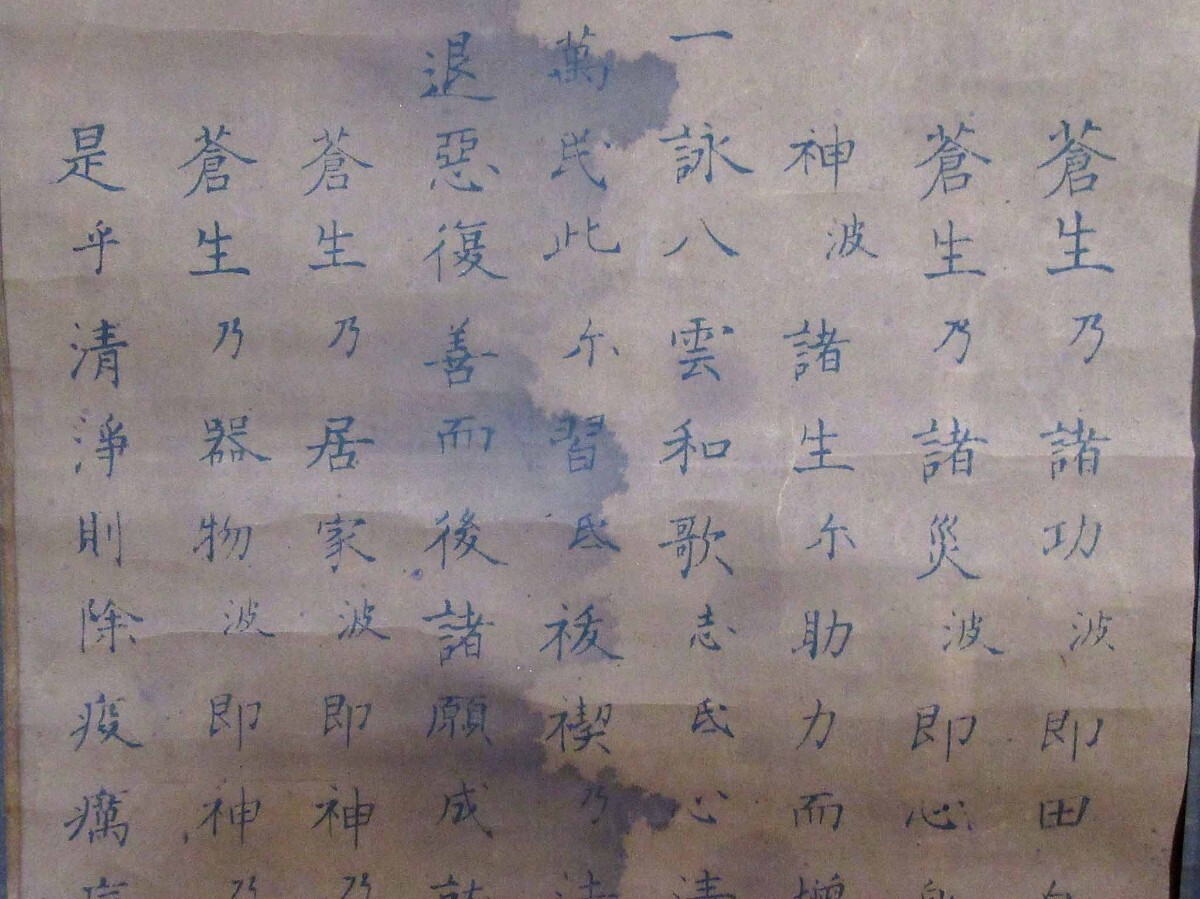 蒼生乃諸功波即田
蒼生乃諸災波即心
神波諸生尓助力而増
一詠八雲和歌志氐心清
萬民此尓習氐祓禊乃法
退惡復善而後諸願成就
蒼生乃居家波即神乃
蒼生乃器物波即神乃
是乎清淨則除疫癘